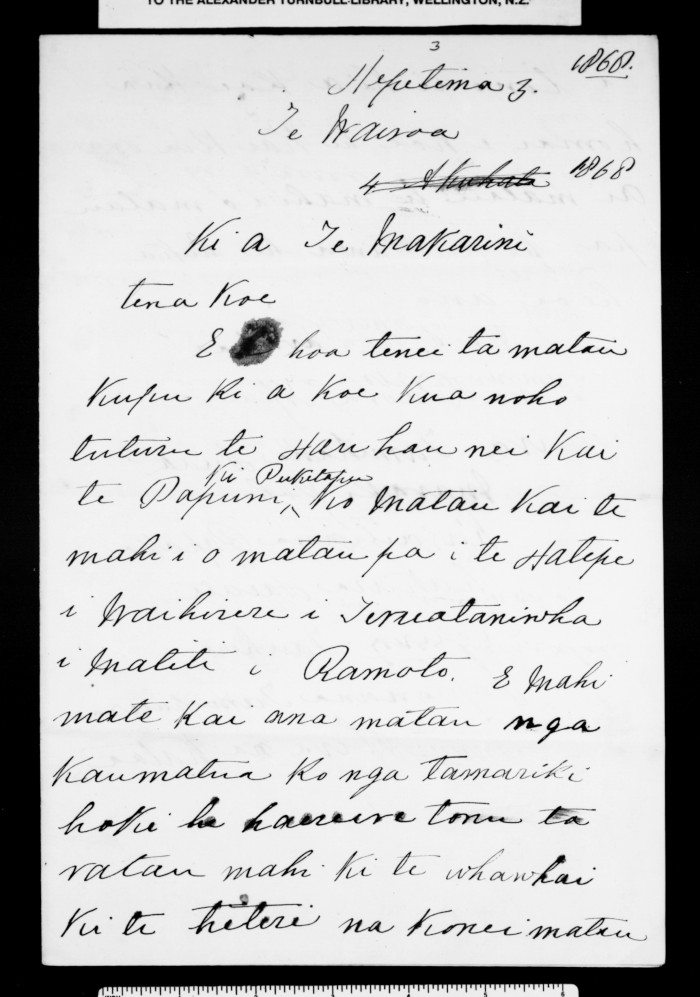 TO THE ALEXANDER TURNBULL LIBRARY, WELLINGTON, N.Z.
3
1868.
Hepetema 3.
Te Wairoa
4 Akuhata 1868
Ki a Te Makarini
tena Koe
E hoa tenei ta matau
Kupu ki a Koe Kua noho
tuturu te Hau hau nei Kai
Kii Puketapu
te Papuni, Ko Matau Kai te
mahi i o matau pa i te Hatepe
i Waihirere i Teruataniwha
i Matiti i Ramoto. E Mahi
mate Kai ana matau nga
Kaumatua Ko nga tamariki
hoki he haereere tonu ta
ratau mahi Ki te whawhai
Kii te titiri na Konei matau